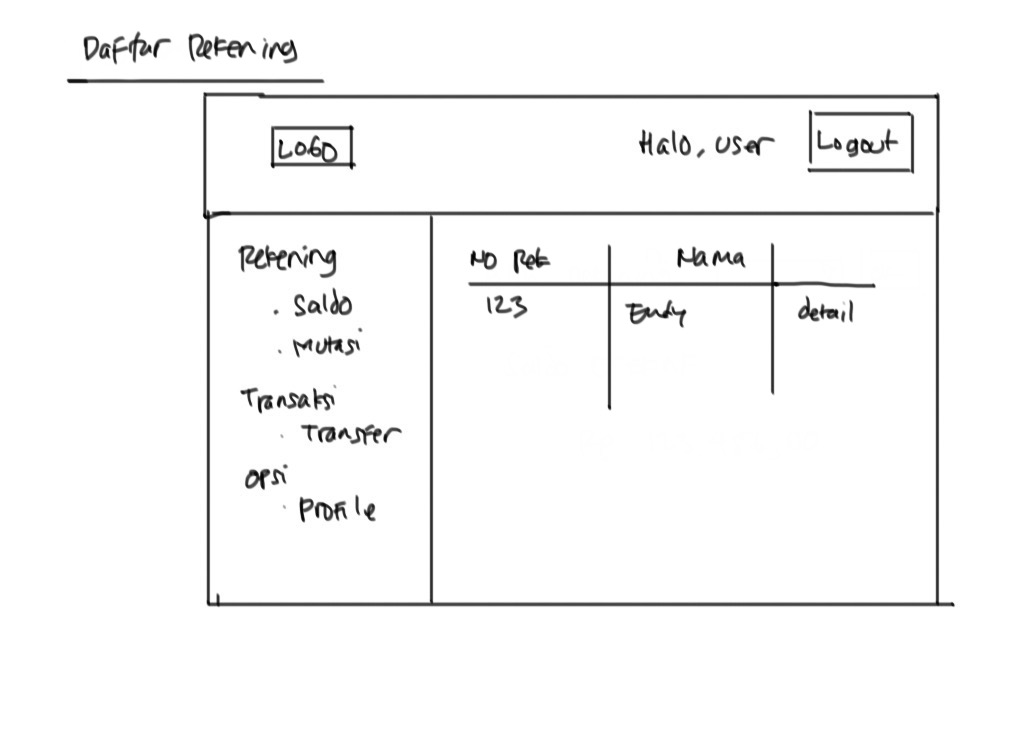 Daftar Rekening
LOGO
Halo, user
Logout
Rekening
. Saldo
. Mutasi
Transaksi
. Transfer
opsi
. Profile
No Rek
Nama
123
Endy
detail